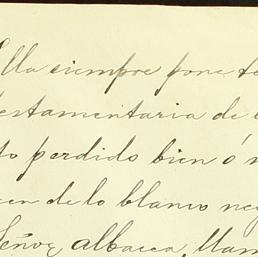 Ella siempre pone te
estamentaria de
to perdido bien ó
cen de lo blanco neg
Señor albacea, llam